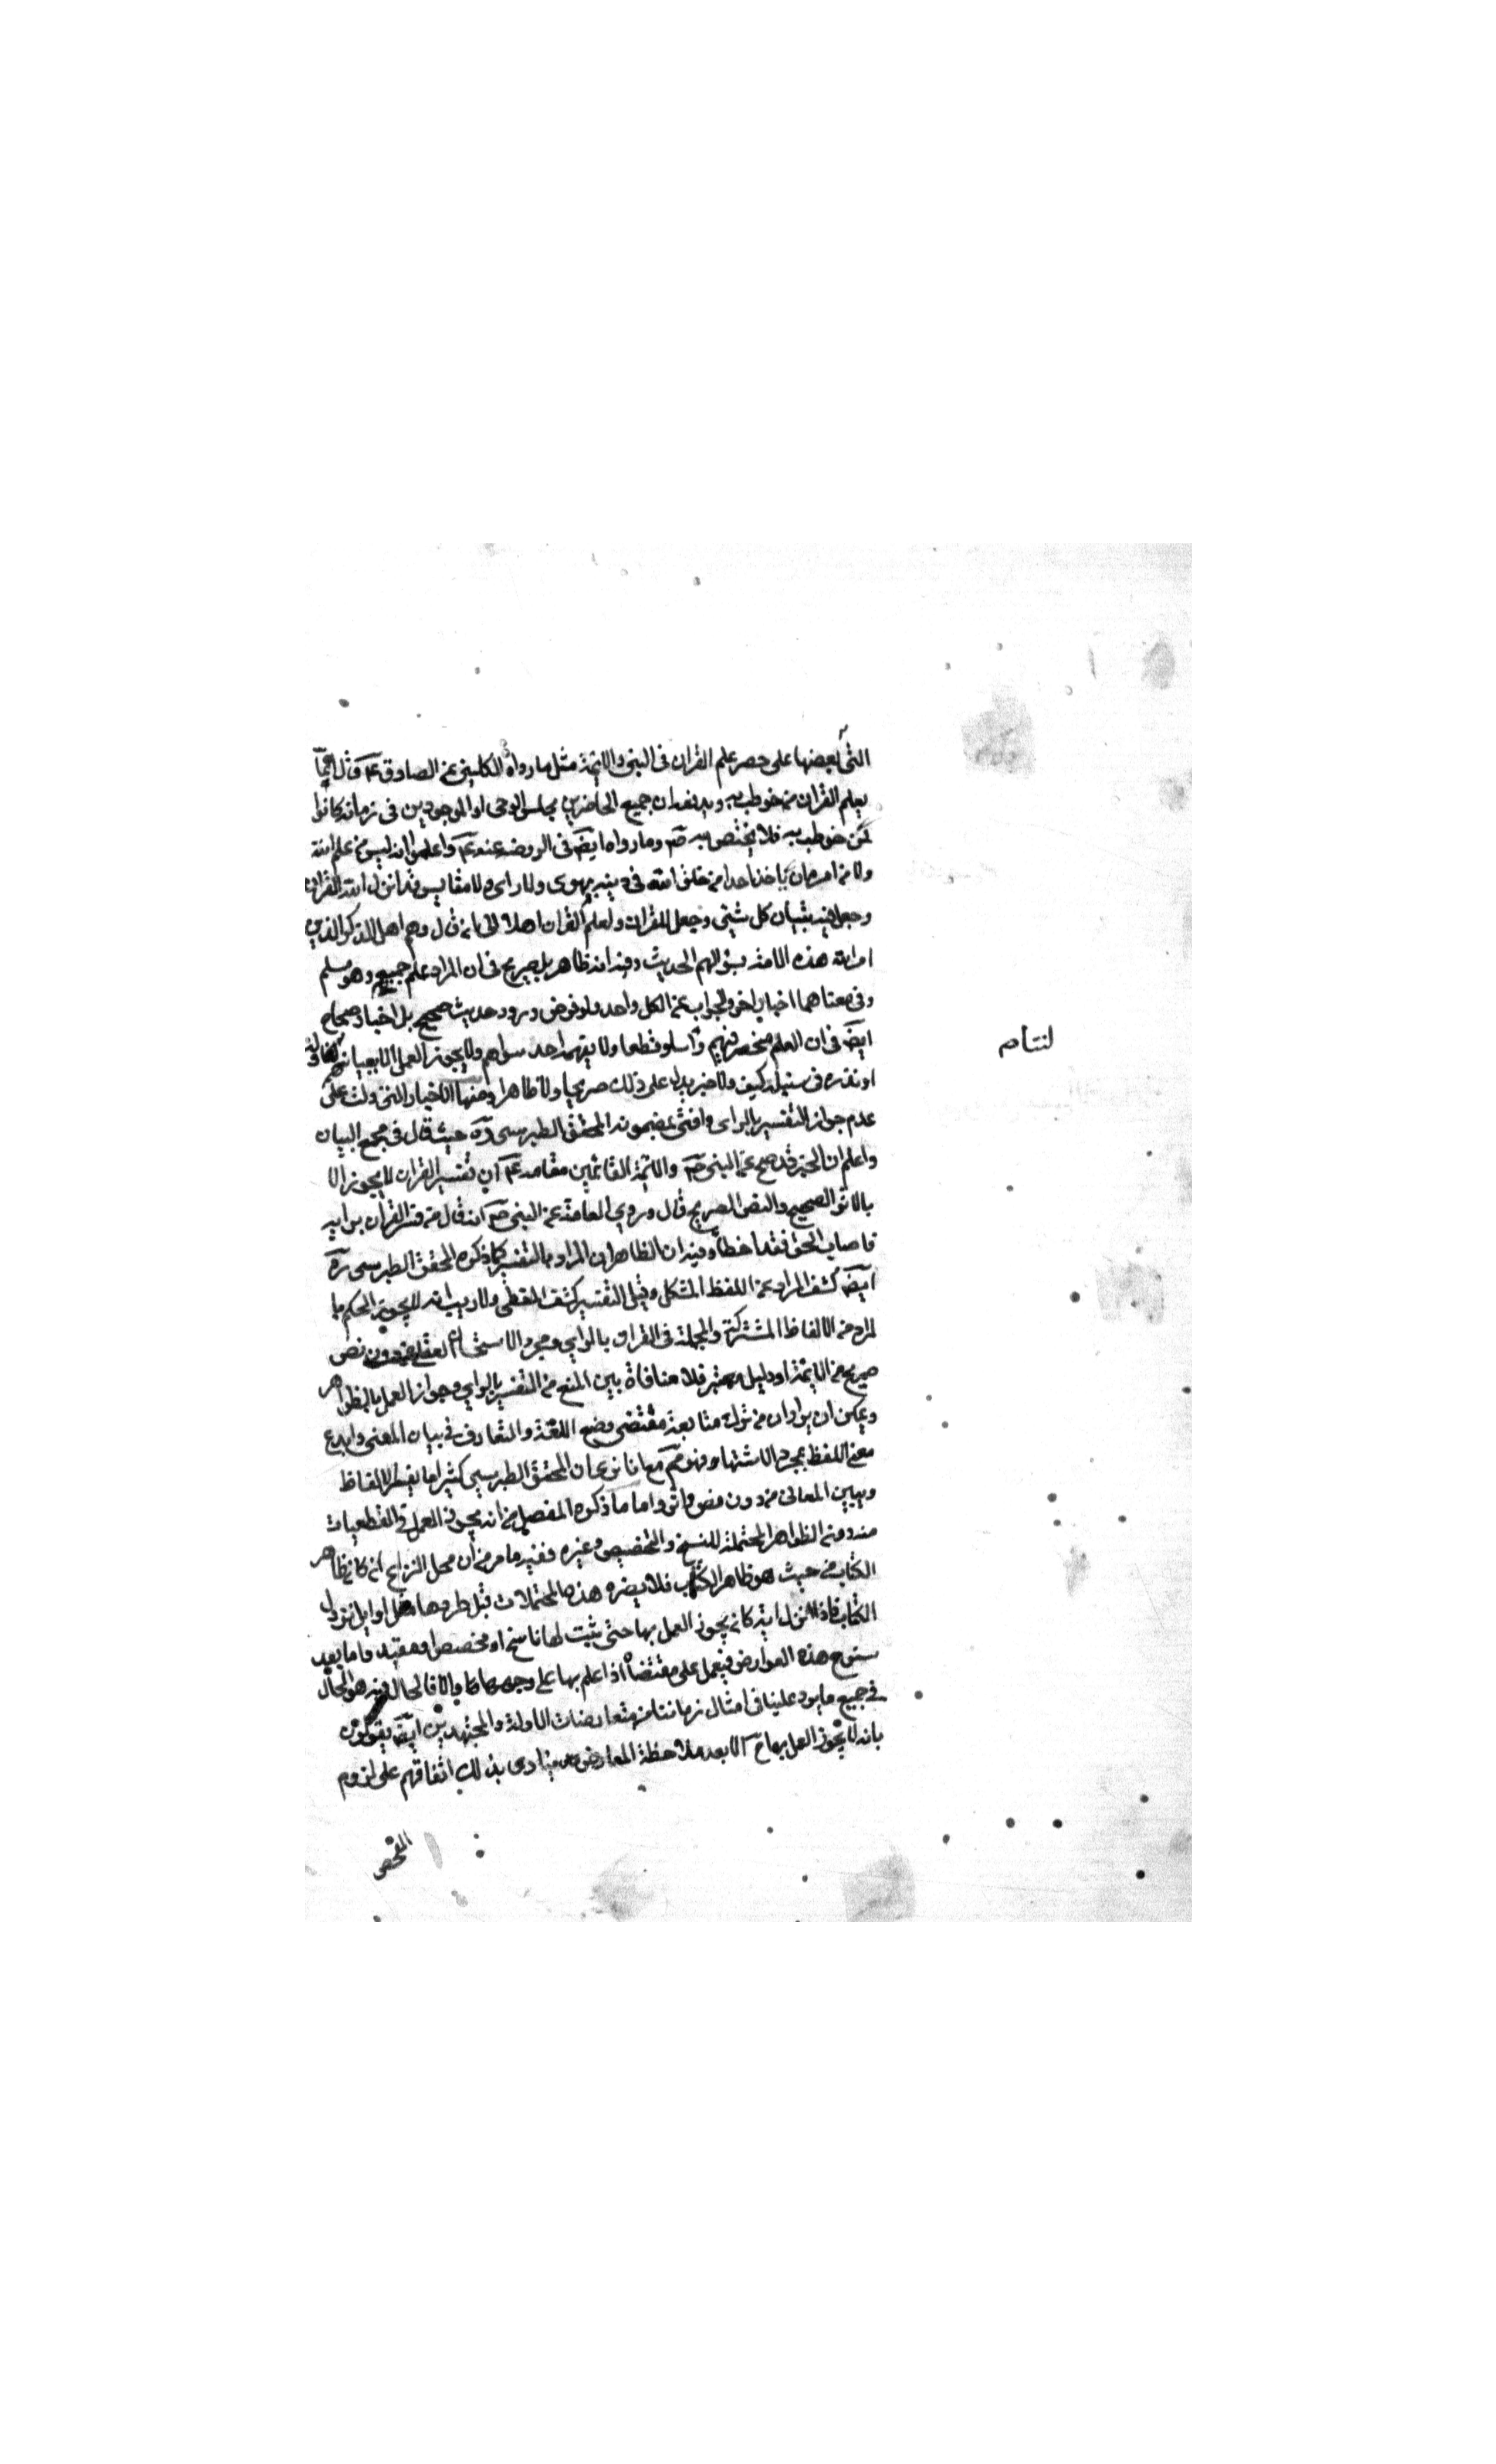 التى بعضها على حصر علم القران فى النبى والائمة مثل ما رواه الكلينى عن الصادق ع قال انما
يعلم القران من خوطب به وفيه ان جميع الحاضرين مجلس الوحى او الموجودين فى زمانه كانوا
ممن خوطب به فلا يختص به ص وما رواه ايض فى الروضه عنه ع واعلموا انه ليس من علم الله
ولا من امره ان ياخذ احد من خلق الله فى دينه بهوى ولا راى ولا مقاييس قد انزل الله القران
وجعل فيه تبيان كل شيئ وجعل للقران ولعلم القران اهلا الى ان قال وهم اهل الذكر الذين
امر الله هذه الامة بسؤالهم الحديث وفيه انه ظاهر بل صريح فى ان المراد علم جميعه وهو مسلم
وفى معناهما اخبار اخر والجواب عن الكل واحد ولو فرض ورود حديث صحيح بل اخبار صحاح
ايض فى ان العلم منحصر فيهم قاسلو قطعا ولا يفهمه احد سواهم ولا يجوز العمل الا ببيانهم
لنتام
او نقره فى سبيله كيف ولا خبر يدل على ذلك صريحا ولا ظاهرا ومنها الاخبار التى دلت على
عدم جواز التفسير بالراى وافتى بمضمونه المحقق الطبرسى ره حيث قال فى مجمع البيان
واعلم ان الخبر قد صح عن النبى ص والائمة القائمين مقامه ع ان تفسير القران لا يجوز الا
بالاثر الصحيح والنص الصريح قال وروى العامة عن النبى ص انه قال من فسر القران برايه
فاصاب الحق فقد اخطأ وفيه ان الظاهر ان المراد بالتفسير كما ذكره المحقق الطبرسى ره
ايض كشف المراد عن اللفظ المشكل وقيل التفسير كشف المغطى ولا ريب انه لا يجوز الحكم با
لمراد من الالفاظ المشتركة والمجملة فى القران بالراى ومجرد الاستحسان العقلى من دون نص
صريح من الائمة او دليل معتبر فلا منافاة بين المنع من التفسير بالراى وجواز العمل بالظواهر
ويمكن ان يراد ان من ترك متابعة مقتضى وضع اللغة والتعارف فى بيان المعنى وابدع
معنى اللفظ بمجرد الاشتهاء فهو مم مع انا نرى ان المحقق الطبرسى كثيرا ما يفسر الالفاظ
ويبين المعانى من دون نص واثر واما ما ذكره المفصل من انه يجوز العمل فى القطعيات
منه دون الظواهر المحتملة للنسخ والتخصيص وغيره ففيه ما مر من ان محل النزاع انه كان ظاهر
الكتاب من حيث هو ظاهر الكتاب فلا يضره هذه المحتملات قبل طروها مثل اوايل نزول
الكتاب فاذا نزل اية كان يجوز العمل بها حتى يثبت لها ناسخ او مخصص او مقيد واما بعد
سنوح هذه العوارض فيعمل على مقتضاه اذا علم بها على وجهها والا فالحال فيه هو الحال
فى جميع ما يرد علينا فى امثال زماننا من متعارضات الادلة والمجتهدين ايض يقولون
بانه لا يجوز العمل بها ح الا بعد ملاحظة المعارض وينادى بذلك اتفاقهم على لزوم
الفحص